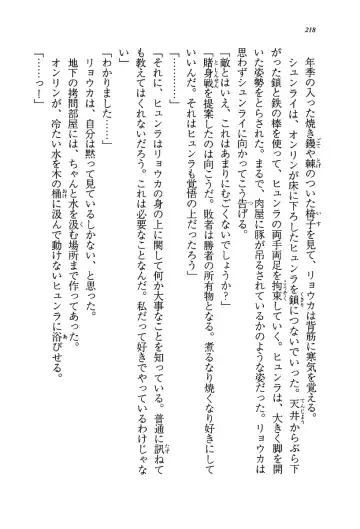 218
年季の入った焼き鏝や棘のついた椅子を見て、リョウカは背筋に寒気を覚える。
シュンライは、オンリンが床に下ろしたヒュンラを鎖につないでいった。天井からぶら下
がった鎖と鉄の棒を使って、ヒュンラの両手両足を拘束していく。ヒュンラは、大きく脚を開
いた姿勢をとらされた。まるで、肉屋に豚が吊るされているかのような姿だった。リョウカは
思わずシュンライに向かってこう告げる。
「敵とはいえ、これはあまりにむごくないでしょうか？」
「賭身戦を提案したのは向こうだ。敗者は勝者の所有物となる。煮るなり焼くなり好きにして
いいんだ。それはヒュンラも覚悟の上だったろう」
「…………」
「それに、ヒュンラはリョウカの身の上に関して何か大事なことを知っている。普通に訊ねて
も教えてはくれないだろう。これは必要なことなんだ。私だって好きでやっているわけじゃな
い」
「わかりました……」
リョウカは、自分は黙って見ているしかない、と思った。
地下の拷問部屋には、ちゃんと水を汲む場所まで作ってあった。
オンリンが、冷たい水を木の桶に汲んで動けないヒュンラに浴びせる。
「……っ！」